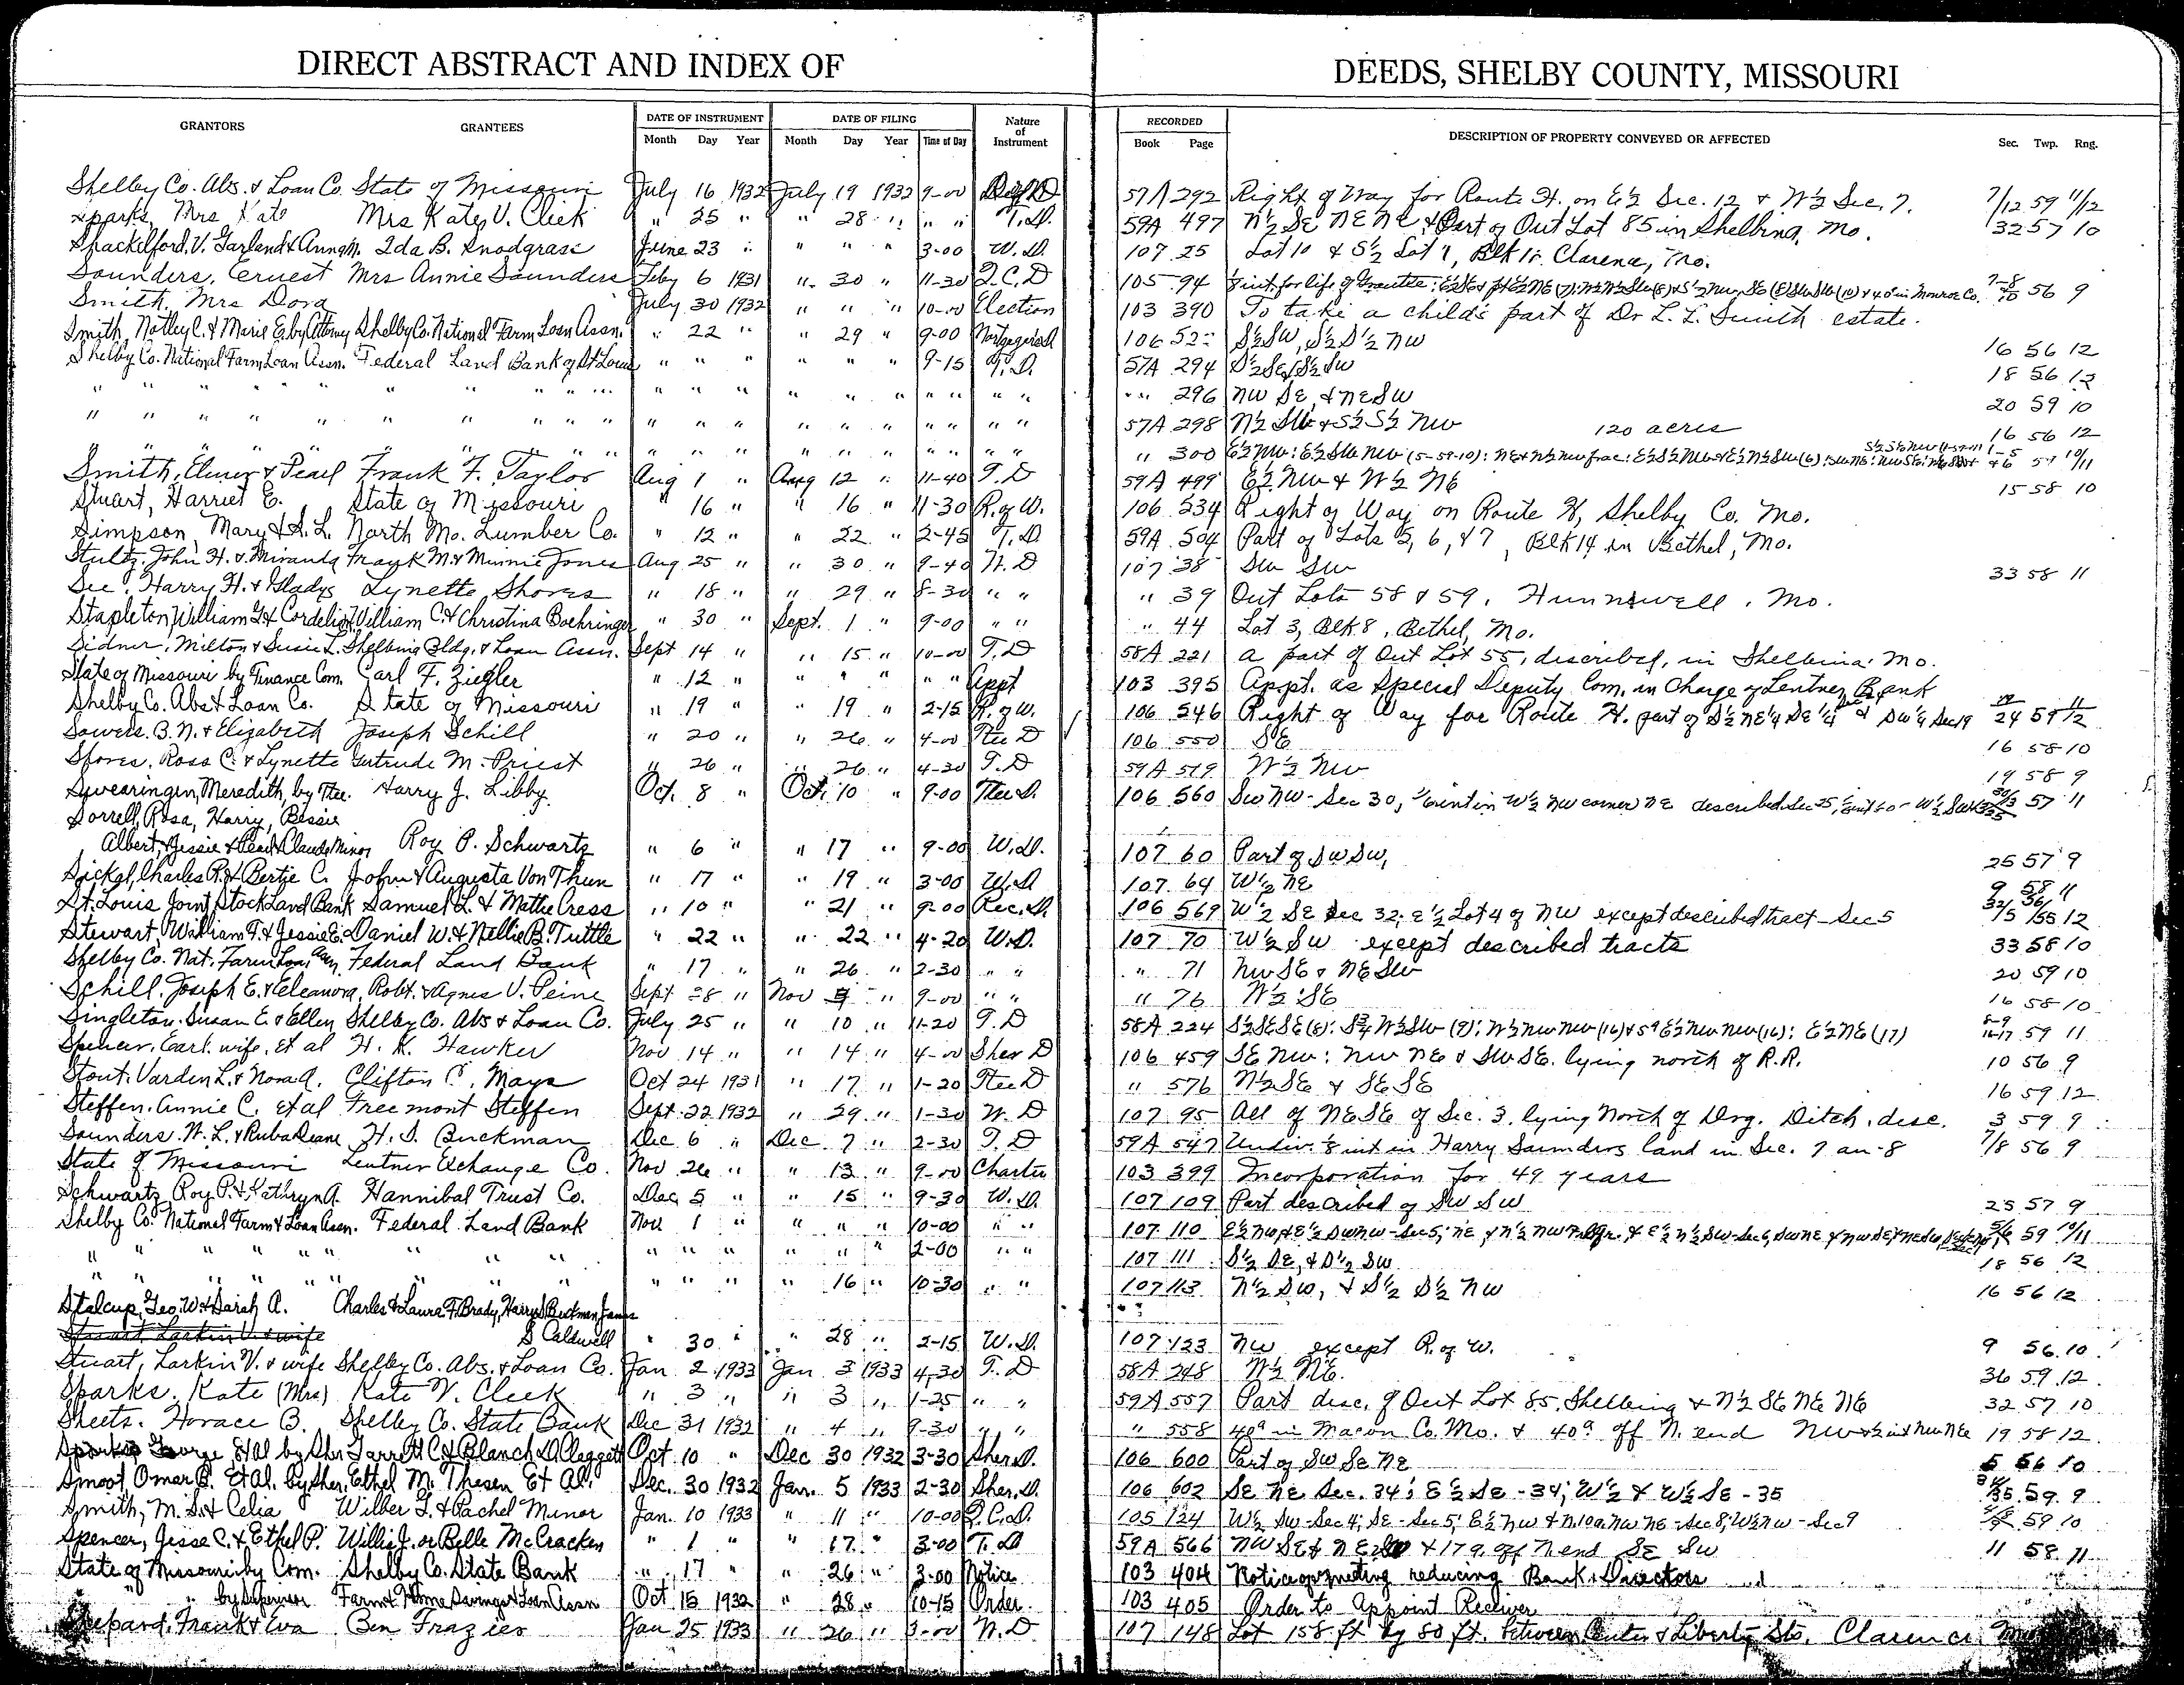 DIRECT ABSTRACT AND INDEX OF DEEDS, SHELBY COUNTY, MISSOURI
GRANTORS GRANTEES DATE OF INSTRUMENT DATE OF FILING Nature of Instrument RECORDED DESCRIPTION OF PROPERTY CONVEYED OR AFFECTED Sec. Twp. Rng.
Month Day Year Month Day Year Time of Day Book Page
Shelby Co. Abs. & Loan Co. State of Missouri July 16 1932 July 19 1932 9-00 57A 292 Right of Way for Route H. on E½ Sec. 12 & W½ Sec. 7. 7/12 59 11/12
Sparks, Mrs Kate Mrs Kate V. Cleek " 25 " " 28 " " " T.D. 59A 497 N½ SE NE NE & Part of Out Lot 85 in Shelbina, Mo. 32 57 10
Shackilford, V. Garland & Anna M. Ida B. Snodgrass June 23 " " " " 3-00 W.D. 107 25 Lot 10 & S½ Lot 7, Blk 15 Clarence, Mo.
Saunders, Ernest Mrs Annie Saunders Feby 6 1931 " 30 " 11-30 Q.C.D 105 94 56 9
Smith, Mrs Dora July 30 1932 " " " 10-00 Election 103 390 To take a child's part of Dr L. L. Smith estate.
Smith, Notley C. & Marie E. by Attorney Shelby Co. National Farm Loan Assn. " 22 " " 29 " 9-00 106 52 S½ SW, S½ S½ NW 16 56 12
Shelby Co. National Farm Loan Assn. Federal Land Bank of St Louis " " " " " " 9-15 T.D. 57A 294 S½ SE, S½ SW 18 56 12
" " " " " " " " " " " " " " " " " " 296 NW SE, & NE SW 20 59 10
" " " " " " " " " " " " " " " " " 57A 298 N½ SW & S½ S½ NW 120 acres 16 56 12
" " " " " " " " " " " " " " " " " " 300 E½ NW: E½ SW NW (5-59-10): 59 10/11
Smith, Elmer & Pearl Frank F. Taylor Aug 1 " Aug 12 " 11-40 T.D 59A 499 E½ NW & W½ NE 15 58 10
Stuart, Harriet E. State of Missouri " 16 " " 16 " 11-30 R.of W. 106 534 Right of Way on Route H, Shelby Co. Mo.
Simpson, Mary & S. L. North Mo. Lumber Co. " 12 " " 22 " 2-45 T.D. 59A 504 Part of Lots 5, 6, & 7, Blk 14 in Bethel, Mo.
Stultz, John H. & Miranda Frank M. & Minnie Jones Aug 25 " " 30 " 9-40 W.D 107 38 SW SW 33 58 11
See, Harry H. & Gladys Lynette Shores " 18 " " 29 " 8-30 " " " 39 Out Lots 58 & 59, Hunnewell, Mo.
Stapleton, William G. & Cordelia William C. & Christina Boehringer " 30 " Sept. 1 " 9-00 " " " 44 Lot 3, Blk 8, Bethel, Mo.
Sidner, Milton & Susie L. Shelbina Bldg. & Loan Assn. Sept 14 " " 15 " 10-00 T.D 58A 221 a part of Out Lot 55, described, in Shelbina, Mo.
State of Missouri by Finance Com. Carl F. Ziegler " 12 " " " " " " Appt 103 395 Appt. as Special Deputy Com. in Charge of Lentner Bank
Shelby Co. Abs & Loan Co. State of Missouri " 19 " " 19 " 2-15 R. of W. 106 546 Right of Way for Route H. part of S½ NE¼ SE¼ & SW¼ Sec 19 19/24 59 11/12
Sowers. B. N. & Elizabeth Joseph Schill " 20 " " 26 " 4-00 Tee D 106 550 SE 16 58 10
Shores, Ross C. & Lynette Gertrude M. Priest " 26 " " 26 " 4-30 T.D 59A 519 W½ NW 19 58 9
Swearingen, Meredith, by Tee. Harry J. Libby Oct. 8 " Oct. 10 " 9-00 Tee D. 106 560 SW NW - Sec 30, W½ NW corner NE described 57 11
Sorrell, Rosa, Harry, Bessie
Albert, Jessie & Pearl & Claude Minor Roy P. Schwartz " 6 " " 17 " 9-00 W.D. 107 60 Part of SW SW, 25 57 9
Sickel, Charles R. & Bertie C. John & Augusta Von Thun " 17 " " 19 " 3-00 W.D 107 64 W½ NE 9 58 11
St. Louis Joint Stock Land Bank Samuel L. & Mattie Cress " 10 " " 21 " 9-00 Rec. D. 106 569 W½ SE Sec 32; E½ Lot 4 of NW except described tract - Sec 5 32/5 56/55 12
Stewart, William T. & Jessie E. Daniel W. & Nellie B. Tuttle " 22 " " 22 " 4-20 W.D. 107 70 W½ SW except described tracts 33 58 10
Shelby Co. Nat. Farm Loan Assn. Federal Land Bank " 17 " " 26 " 2-30 " " " 71 NW SE & NE SW 20 59 10
Schill, Joseph E. & Eleanora, Robt. & Agnes V. Peine Sept 28 " Nov 9 " 9-00 " " " 76 W½ SE 16 58 10
Singleton, Susan E. & Ellen Shelby Co. Abs & Loan Co. July 25 " " 10 " 11-20 T.D 58A 224 S½ SE SE (8): S¾ W½ SW (9): N½ NW NW (16) & 5ª E½ NW NW (16): E½ NE (17) 8-9 16-17 59 11
Spencer, Earl, wife, et al H. K. Hawker Nov 14 " " 14 " 4-00 Sher D 106 459 SE NW: NW NE & SW SE. lying north of R.R. 10 56 9
Stout, Varden L. & Nora A. Clifton C. Mays Oct 24 1931 " 17 " 1-20 Tee D " 576 N½ SE & SE SE 16 59 12
Steffen, Annie C. et al Freemont Steffen Sept. 22 1932 " 29 " 1-30 W. D 107 95 All of NE SE of Sec. 3, lying North of Drg. Ditch, desc. 3 59 9
Saunders, W. L. & Ruba Deane H. S. Buckman Dec 6 " Dec. 7 " 2-30 T.D 59A 547 Undiv. ⅛ int in Harry Saunders land in Sec. 7 an-8 7/8 56 9
State of Missouri Lentner Exchange Co. Nov 26 " " 13 " 9-00 Charter 103 399 Incorporation for 49 years
Schwartz, Roy P. & Kathryn A. Hannibal Trust Co. Dec. 5 " " 15 " 9-30 W.D. 107 109 Part described of SW SW 25 57 9
Shelby Co. National Farm & Loan Assn. Federal Land Bank Nov. 1 " " " " 10-00 " " 107 110 E½ NW & E½ SW NW - Sec 5; 5/6 59 10/11
" " " " " " " " " " " " " " 2-00 " " 107 111 S½ SE, & S½ SW 18 56 12
" " " " " " " " " " " " 16 " 10-30 " " 107 113 N½ SW, & S½ S½ NW 16 56 12
Stalcup, Geo. W. & Sarah A. Charles & Laura F. Brady, Harry S Buckman, James
Stuart, Larkin V. & wife S Caldwell " 30 " " 28 " 2-15 W.D. 107 133 NW except R. of W. 9 56 10
Stuart, Larkin V. & wife Shelby Co. Abs. & Loan Co. Jan 2 1933 Jan 3 1933 4-30 T.D 58A 248 W½ NE. 36 59 12
Sparks, Kate (Mrs) Kate V. Cleek " 3 " " 3 " 1-25 " " 59A 557 Part desc. of Out Lot 85, Shelbina & N½ SE NE NE 32 57 10
Sheets, Horace B. Shelby Co. State Bank Dec 31 1932 " 4 " 9-30 " " " 558 40ª in Macon Co. Mo. & 40ª off N. end 19 58 12
Sparks George et al by Sher Garrett C. & Blanch D. Cleggett Oct 10 " Dec 30 1932 3-30 Sher D. 106 600 Part of SW SE NE 5 56 10
Smoot, Omar B. Et Al. by Sher. Ethel M. Thesen Et Al. Dec. 30 1932 Jan. 5 1933 2-30 Sher. D. 106 602 SE NE Sec. 34; E½ SE - 34; W½ & W½ SE - 35 34/35 59 9
Smith, M. S. & Celia Wilber G. & Rachel Minor Jan. 10 1933 " 11 " 10-00 Q.C.D. 105 124 W½ SW - Sec 4; SE - Sec 5; E½ NW & N.10a NW NE - Sec 8; W½ NW - Sec 9 59 10
Spencer, Jesse C. & Ethel P. Willis J. or Belle McCracken " 1 " " 17 " 3-00 T.D 59A 566 NW SE & NE SW & 17 a. off N end SE SW 11 58 11
State of Missouri by Com. Shelby Co. State Bank " 17 " " 26 " 3-00 Notice 103 404 Notice of reducing Bank Directors
" by Supervisor Farm & Home Savings & Loan Assn Oct 15 1932 " 28 " 10-15 Order 103 405 Order to Appoint Receiver
Shepard, Frank & Eva Ben Frazier Jan 25 1933 " 26 " 3-00 W.D 107 148 Lot 158 ft by 80 ft. between Center & Liberty Sts. Clarence, Mo